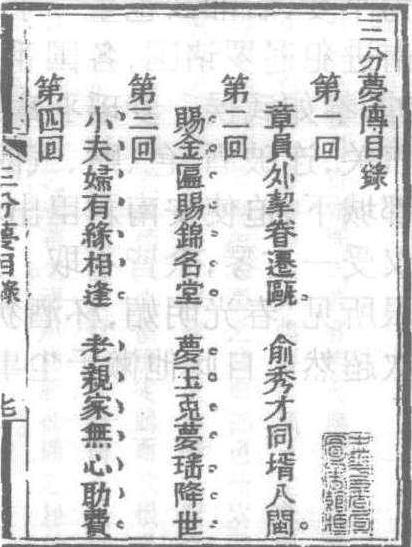 三分夢傳目錄
第一回
章員外挈眷遷甌 俞秀才同壻入閩
第二回
賜金匾賜錦名堂 夢玉兎夢璠降世
第三回
小夫婦有緣相逢 老親家無心助費
第四回
三分夢目錄